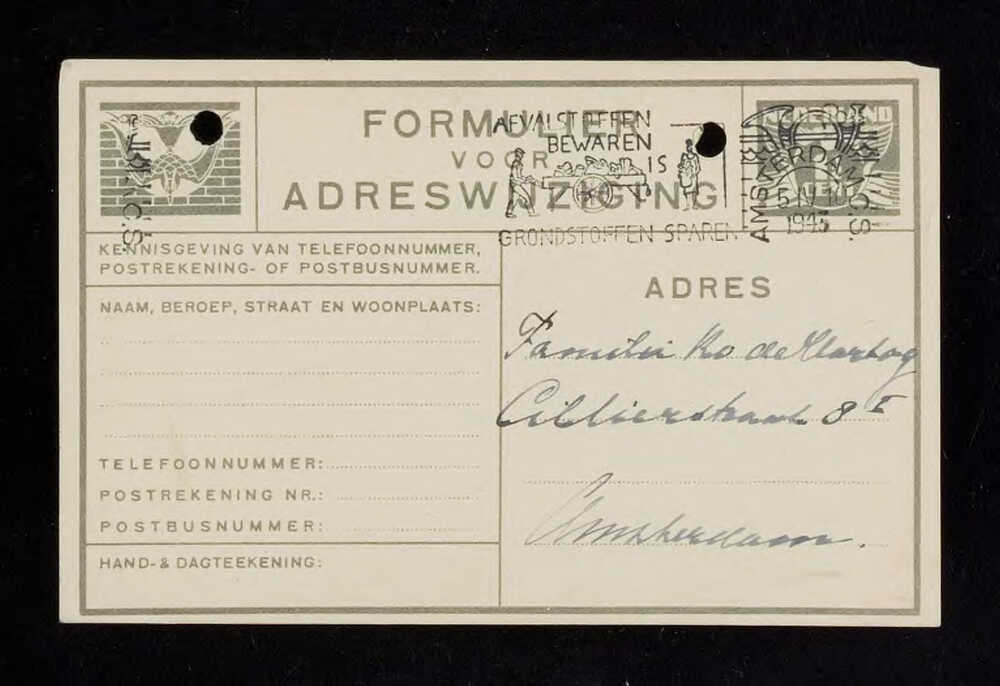 FORMULIER
VOOR
ADRESWIJZIGING
AFVALSTOFFEN
BEWAREN
IS
GRONDSTOFFEN SPAREN
NEDERLAND
AMSTERDAM C.S.
1943
KENNISGEVING VAN TELEFOONNUMMER,
POSTREKENING- OF POSTBUSNUMMER.
NAAM, BEROEP, STRAAT EN WOONPLAATS:
TELEFOONNUMMER:
POSTREKENING NR.:
POSTBUSNUMMER:
HAND- & DAGTEEKENING:
ADRES
Familie Ko de Hartog
Cillierstraat 8 I
Amsterdam.